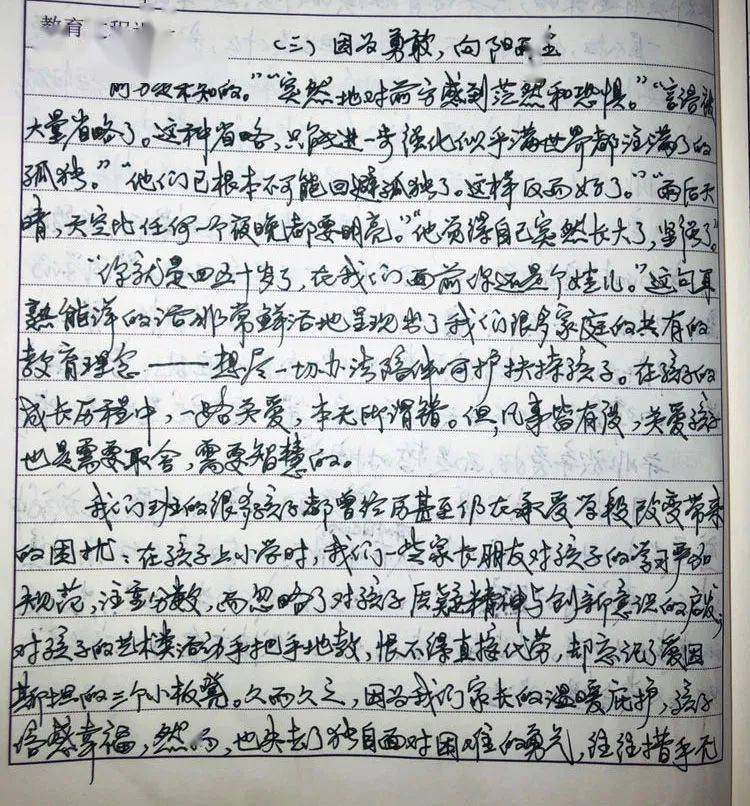 教育
（三）因为勇敢，向阳而生
的。”“突然地对前方感到茫然和恐惧。”“言语被
大量省略了。这种省略，只能进一步强化似乎满世界都注满了的
孤独。”“他们已根本不可能回避孤独了。这样反而好了。”“雨后天
晴，天空比任何一个夜晚都要明亮。”“他觉得自己突然长大了，坚强了。”
“你就是四五十岁了，在我们面前你还是个娃儿。”这句耳
熟能详的话非常鲜活地呈现出了我们很多家庭的共有的
教育理念——想尽一切办法陪伴呵护扶持孩子。在孩子的
成长历程中，一路关爱，本无所谓错。但，凡事皆有度，关爱孩子
也是需要取舍，需要智慧的。
我们班的很多孩子都曾经历甚至仍在承受学段改变带来
的困扰：在孩子上小学时，我们一些家长朋友对孩子的学习严加
规范，注重分数，而忽略了对孩子质疑精神与创新意识的启发；
对孩子的艺术类活动手把手地教，恨不得直接代劳，却忘记了爱因
斯坦的三个小板凳。久而久之，因为我们家长的温暖庇护，孩子
倍感幸福，然而，也失去了独自面对困难的勇气，往往措手不